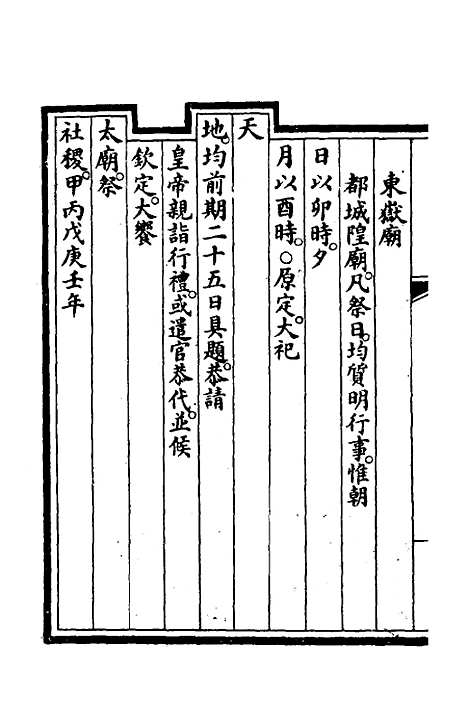 東嶽廟
都城隍廟。凡祭日。均質明行事。惟朝
日以卯時。夕
月以酉時。○原定。大祀
天
地。均前期二十五日具題。恭請
皇帝親詣行禮。或遣官恭代。並候
欽定。大饗
太廟。祭
社稷。甲丙戊庚壬年